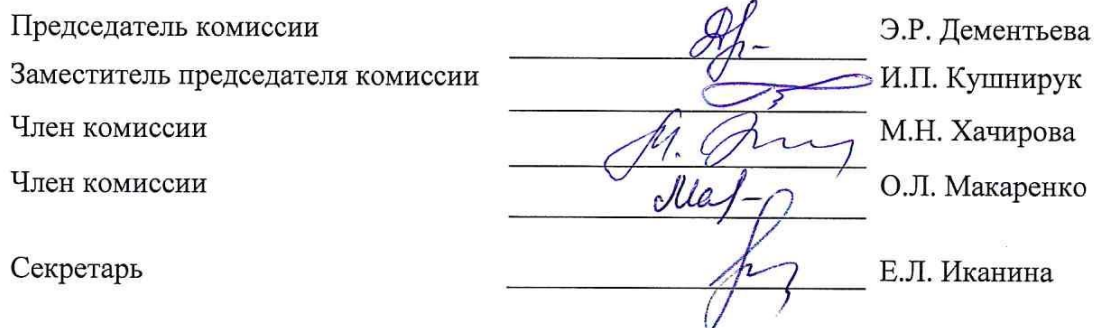 Председатель комиссии Э.Р. Дементьева
Заместитель председателя комиссии И.П. Кушнирук
Член комиссии М.Н. Хачирова
Член комиссии О.Л. Макаренко
Секретарь Е.Л. Иканина